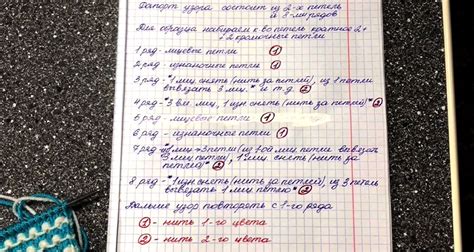 Раппорт узора состоит из 2-х петель
и 8-ми рядов
Для образца набираем к-во петель кратное 2+
+2 кромочные петли
1 ряд - лицевые петли ①
2 ряд - изнаночные петли ①
3 ряд - *1 лиц. снять (нить за петлей), из 1 петли
вывязать 3 лиц.* и т.д. ②
4 ряд - *3 вм. лиц, 1 изн снять (нить за петлей)* ②
5 ряд - лицевые петли ①
6 ряд - изнаночные петли ①
7 ряд - *1 лиц → 3 петли (из 1-ой лиц петли вывяз.
3 лиц петли), 1 лиц. снять (нить за
петлей)* ②
8 ряд - *1 изн снять (нить за петлей), из 3 петель
вывязать 1 лиц петлю* ②
Дальше узор повторять с 1-го ряда
① - нить 1-го цвета
② - нить 2-го цвета